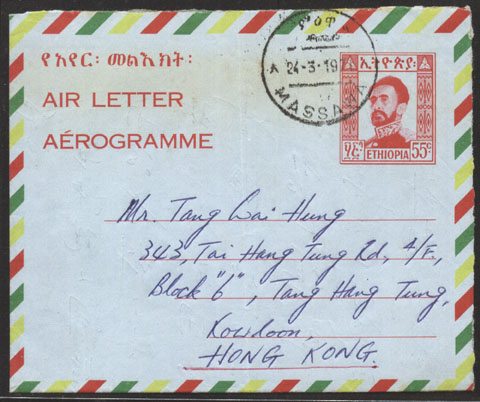 የአየር፡ መልእክት፡
AIR LETTER
AÉROGRAMME
ምፅዋ
A 24-3-19
MASSAWA
ኢትዮጵያ፡
ETHIOPIA 55c
Mr. Tang Wai Hung
343, Tai Hang Tung Rd, 4/F.,
Block "6", Tang Hang Tung,
Kowloon,
HONG KONG.